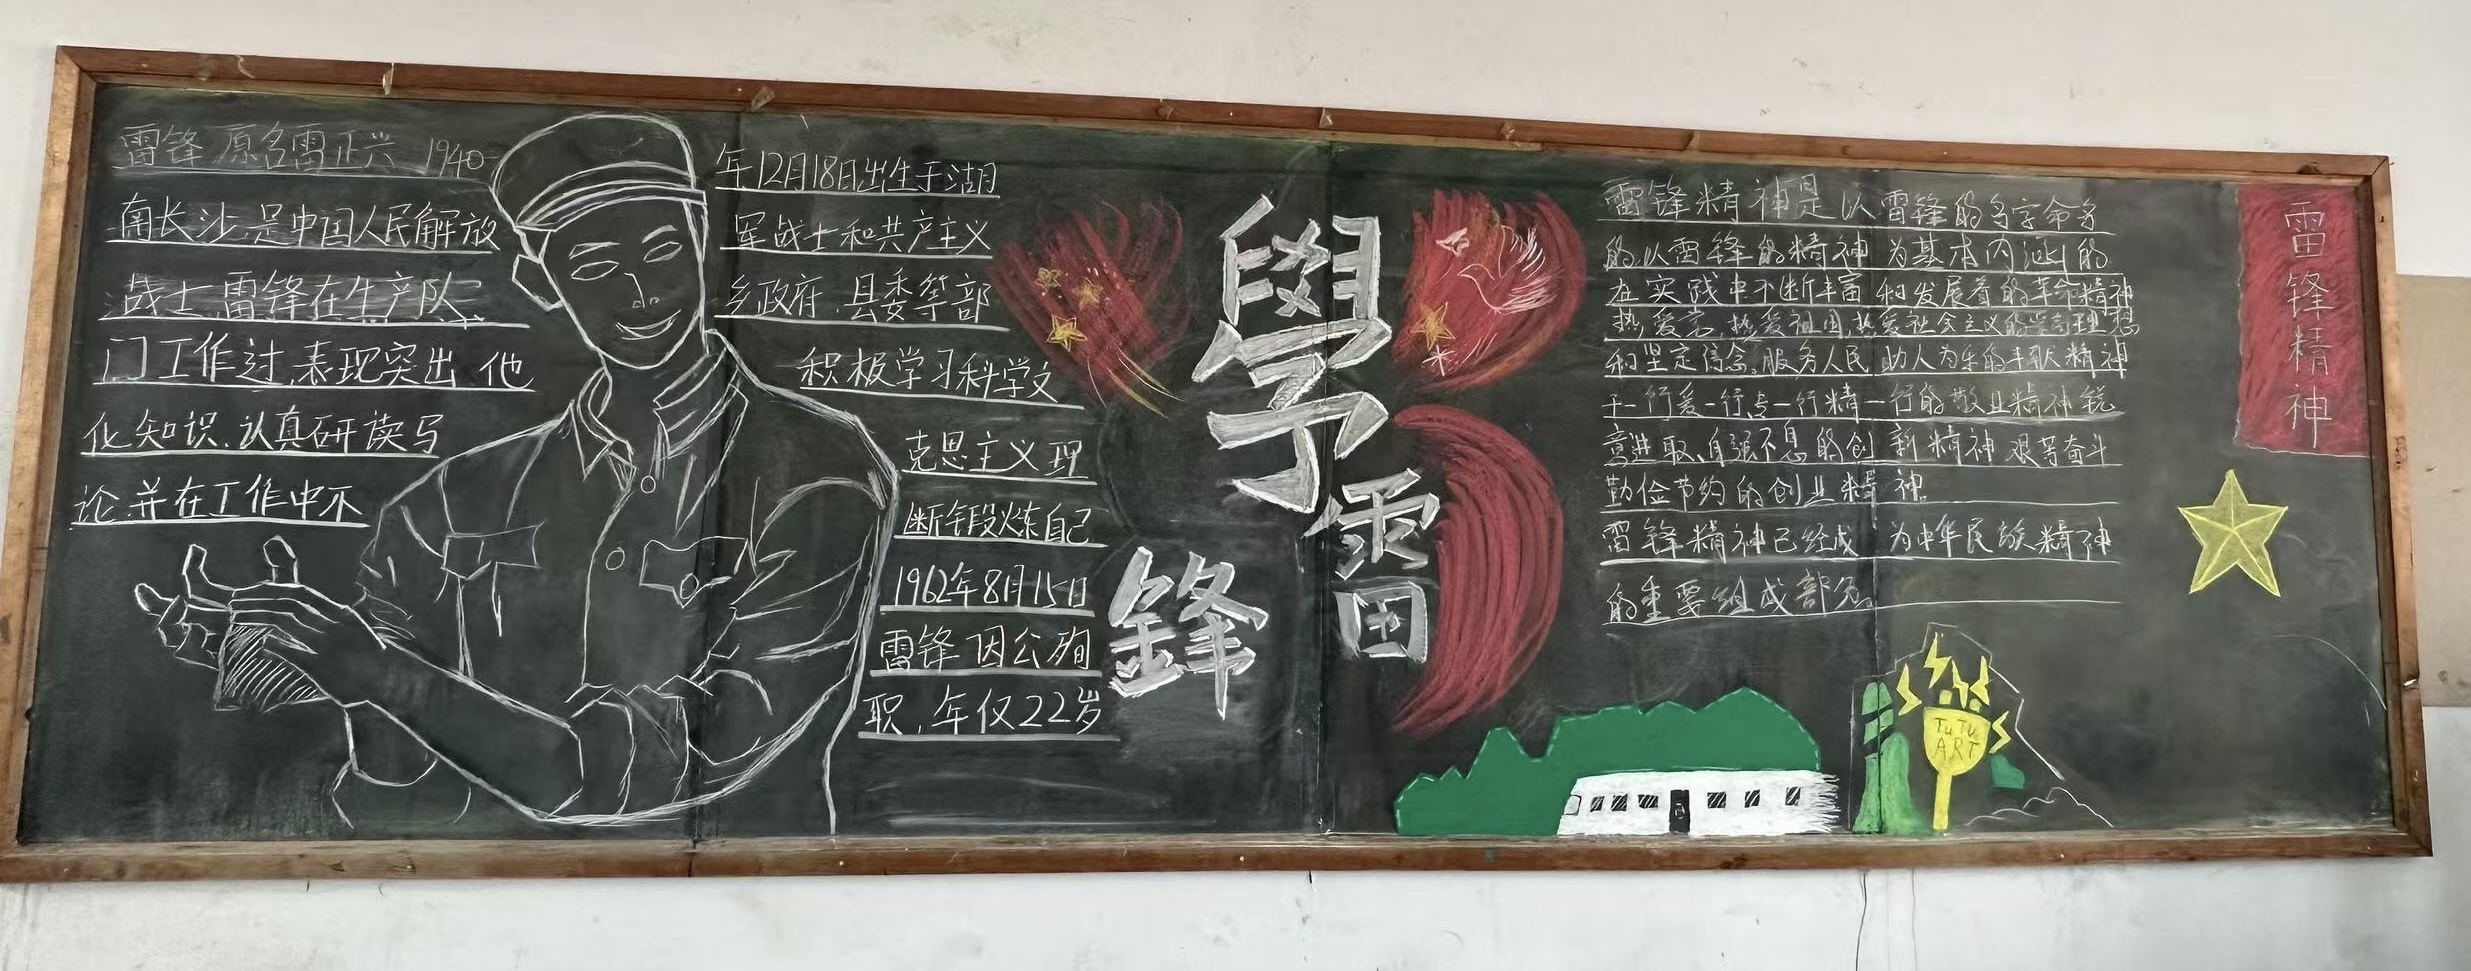 雷锋 原名雷正兴 1940年12月18日出生于湖
南长沙,是中国人民解放军战士和共产主义
战士,雷锋在生产队、乡政府、县委等部
门工作过,表现突出 他积极学习科学文
化知识,认真研读马克思主义理
论,并在工作中不断锻炼自己
1962年8月15日
雷锋 因公殉
职,年仅22岁
學
雷
鋒
雷锋精神是以雷锋的名字命名
的,以雷锋的精神为基本内涵的
在实践中不断丰富和发展着的革命精神
热爱党,热爱祖国,热爱社会主义的崇高理想
和坚定信念。服务人民,助人为乐的奉献精神
干一行爱一行专一行精一行的敬业精神锐
意进取、自强不息的创新精神 艰苦奋斗
勤俭节约的创业精神
雷锋精神已经成为中华民族精神
的重要组成部分。
雷锋精神
TUTU
ART